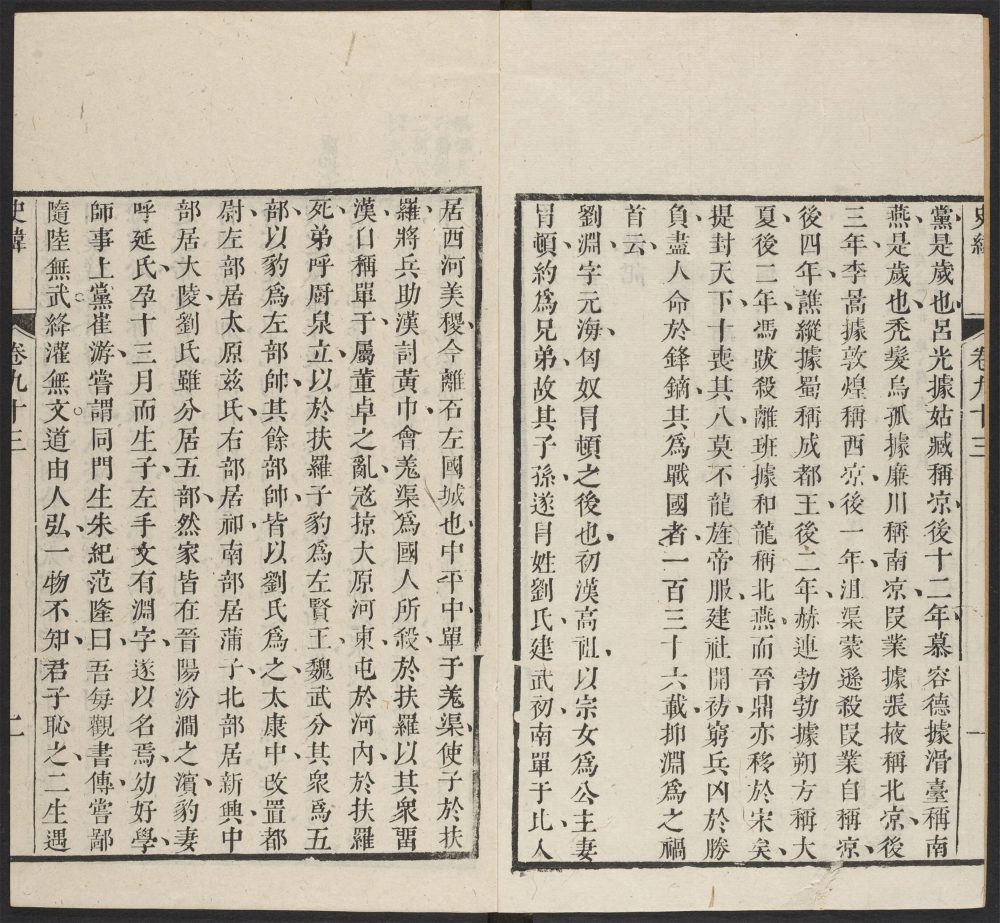 史緯 卷九十三 一
黨是歲也呂光據姑臧稱凉後十二年慕容德據滑臺稱南
燕是歲也禿髮烏孤據廉川稱南凉段業據張掖稱北凉後
三年李暠據敦煌稱西凉後一年沮渠蒙遜殺段業自稱凉
後四年譙縱據蜀稱成都王後二年赫連勃勃據朔方稱大
夏後二年馮跋殺離班據和龍稱北燕而晉鼎亦移於宋矣
提封天下十喪其八莫不龍旌帝服建社開祊窮兵凶於勝
負盡人命於鋒鏑其爲戰國者一百三十六載抑淵爲之禍
首云
劉淵字元海匈奴冒頓之後也初漢高祖以宗女爲公主妻
冒頓約爲兄弟故其子孫遂冒姓劉氏建武初南單于比入
居西河美稷今離石左國城也中平中單于羗渠使子於扶
羅將兵助漢討黃巾會羗渠爲國人所殺於扶羅以其衆畱
漢自稱單于屬董卓之亂寇掠大原河東屯於河內於扶羅
死弟呼厨泉立以於扶羅子豹爲左賢王魏武分其衆爲五
部以豹爲左部帥其餘部帥皆以劉氏爲之太康中改置都
尉左部居太原兹氏右部居祁南部居蒲子北部居新興中
部居大陵劉氏雖分居五部然家皆在晉陽汾澗之濱豹妻
呼延氏孕十三月而生子左手文有淵字遂以名焉幼好學
師事上黨崔游嘗謂同門生朱紀范隆曰吾每觀書傳嘗鄙
隨陸無武絳灌無文道由人弘一物不知君子恥之二生遇
史緯 卷九十三 二